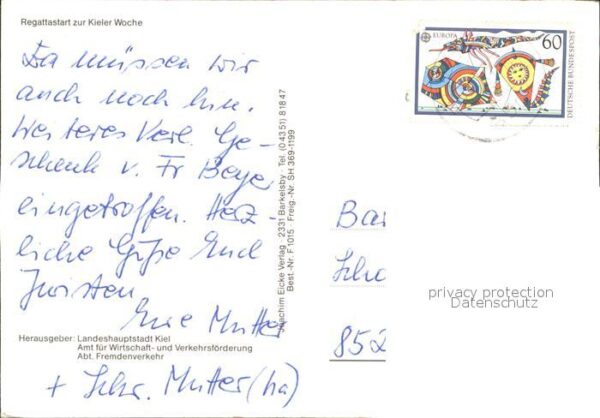 Regattastart zur Kieler Woche
Da müssen wir
auch noch hin.
Weiteres Verl. Ge-
schenk v. Fr Beyer
eingetroffen. Herz-
liche Grüße Euch
Eure Mutter
+ Schw. Mutter (ha)
Herausgeber: Landeshauptstadt Kiel
Amt für Wirtschaft- und Verkehrsförderung
Abt. Fremdenverkehr
Joachim Eicke Verlag · 2331 Barkelsby · Tel. (04351) 81847
Best.-Nr. F 1015 · Freig.-Nr. SH 369-1199
EUROPA
60
DEUTSCHE BUNDESPOST
Bar
Scho
852
privacy protection
Datenschutz